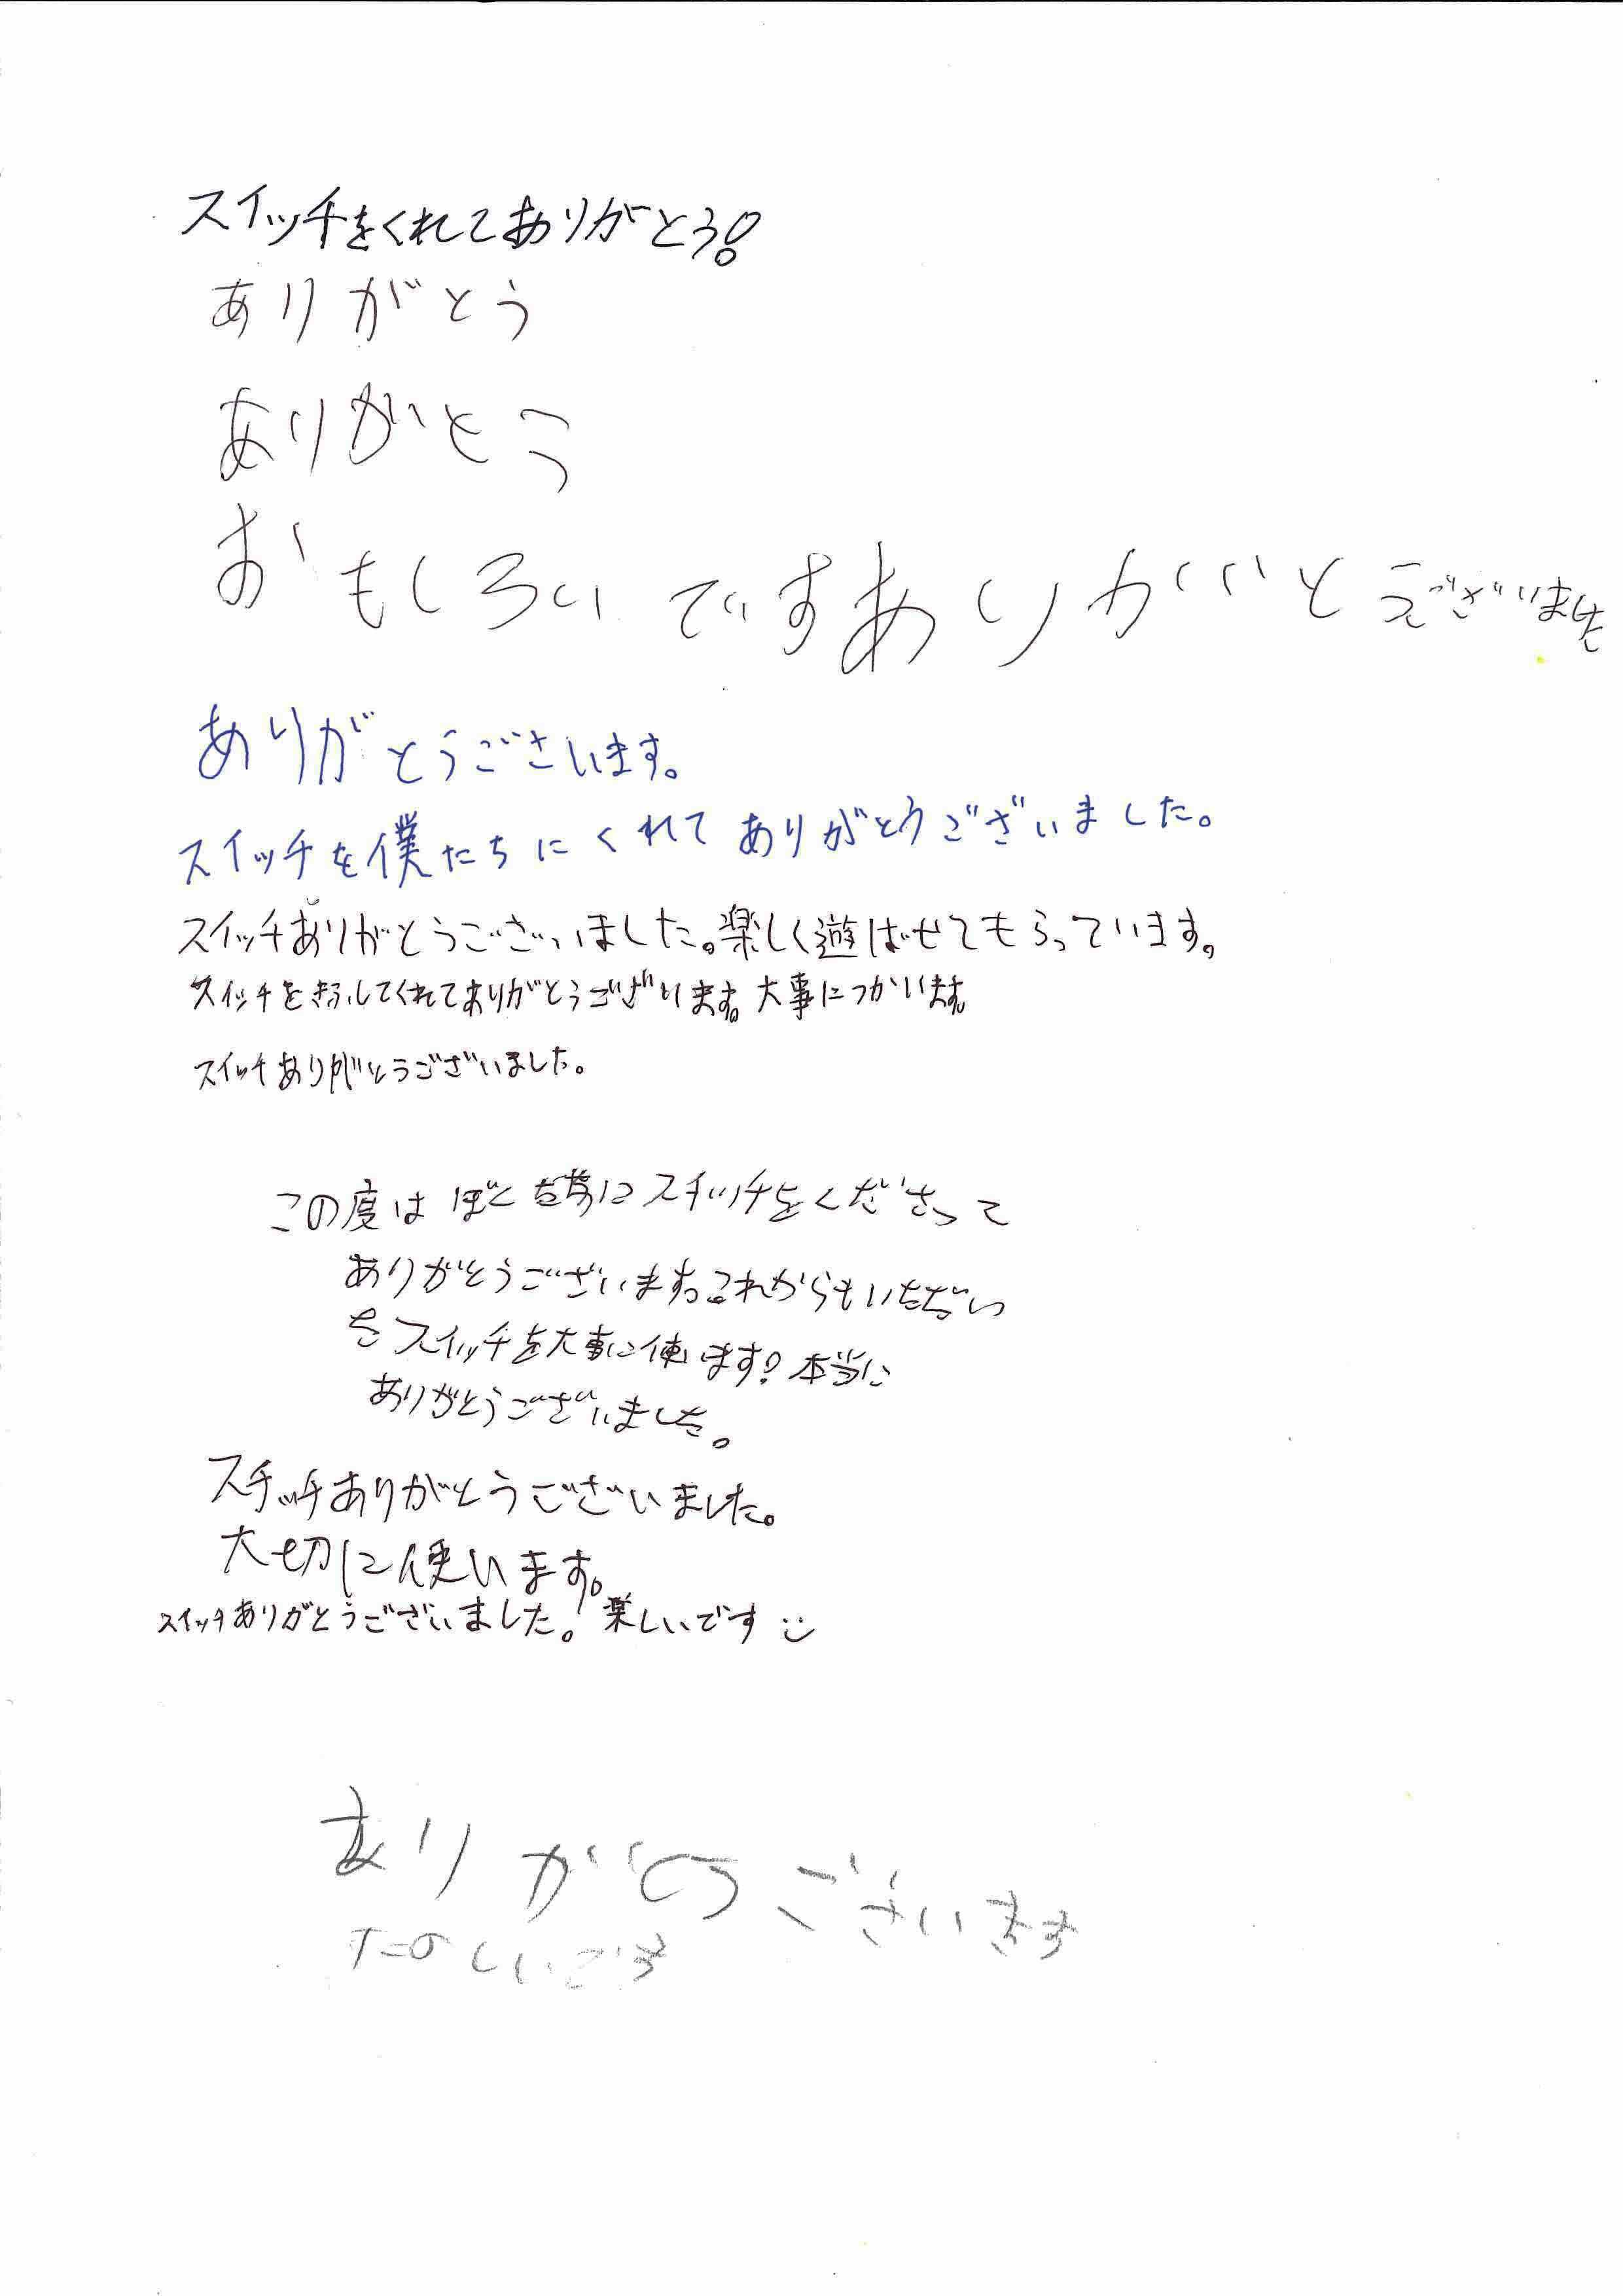 スイッチをくれてありがとう!
ありがとう
ありがとう
おもしろいですありがとうございました
ありがとうごさいます。
スイッチを僕たちにくれてありがとうございました。
スイッチありがとうございました。楽しく遊ばせてもらっています。
スイッチをきふしてくれてありがとうございます。大事につかいます。
スイッチありがとうございました。
この度はぼくたちにスイッチをくださって
ありがとうございます。これからもいただい
たスイッチを大事に使います!本当に
ありがとうございました。
スイッチありがとうございました。
大切に使います。
スイッチありがとうございました!楽しいです
ありがとうごさいます
たのしいです